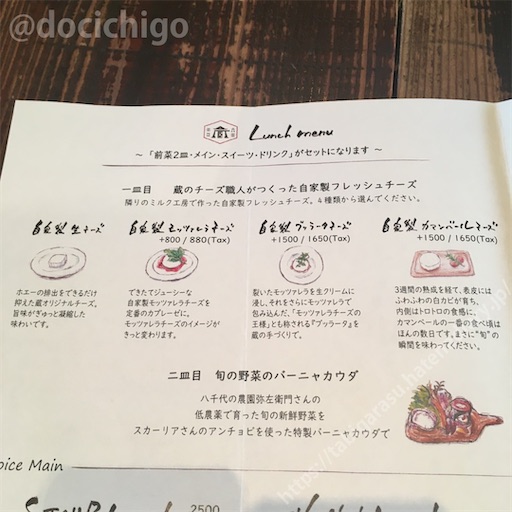 @docichigo
Lunch menu
～「前菜2皿・メイン・スイーツ・ドリンク」がセットになります～
一皿目 蔵のチーズ職人がつくった自家製フレッシュチーズ
隣りのミルク工房で作った自家製フレッシュチーズ。4種類から選んでください。
自家製 生チーズ
ホエーの排出をできるだけ
抑えた蔵オリジナルチーズ。
旨味がぎゅっと凝縮した
味わいです。
自家製 モッツァレラチーズ
+800 / 880(Tax)
できたてジューシーな
自家製モッツァレラチーズを
定番のカプレーゼに。
モッツァレラチーズのイメージが
きっと変わります。
自家製 ブッラータチーズ
+1500 / 1650(Tax)
裂いたモッツァレラを生クリームに
浸し、それをさらにモッツァレラで
包み込んだ、「モッツァレラチーズの
王様」とも称される『ブッラータ』を
蔵の手づくりで。
自家製 カマンベールチーズ
+1500 / 1650(Tax)
3週間の熟成を経て、表皮には
ふわふわの白カビが育ち、
内側はトロトロの食感に。
カマンベールの一番の食べ頃は
ほんの数日です。まさに"旬"の
瞬間を味わってください。
二皿目 旬の野菜のバーニャカウダ
八千代の農園弥左衛門さんの
低農薬で育った旬の新鮮野菜を
スカーリアさんのアンチョビを使った特製バーニャカウダで
oice Main
2500